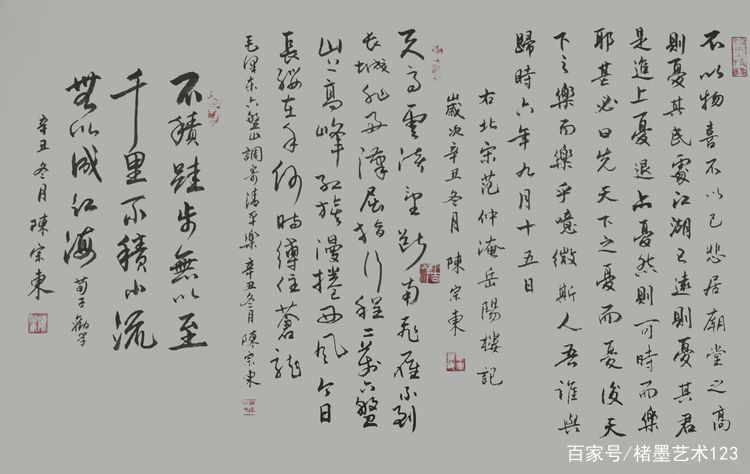 不以物喜不以己悲居廟堂之高
則憂其民處江湖之遠則憂其君
是進亦憂退亦憂然則何時而樂
耶其必曰先天下之憂而憂後天
下之樂而樂乎噫微斯人吾誰與
歸時六年九月十五日
右北宋范仲淹岳陽樓記
歲次辛丑冬月陳宗東
天高雲淡望斷南飛雁不到
長城非好漢屈指行程二萬六盤
山上高峰紅旗漫捲西風今日
長纓在手何時縛住蒼龍
毛澤東六盤山調寄清平樂辛丑冬月陳宗東
不積跬步無以至
千里不積小流
無以成江海荀子勸學
辛丑冬月陳宗東
百家号/楮墨艺术123